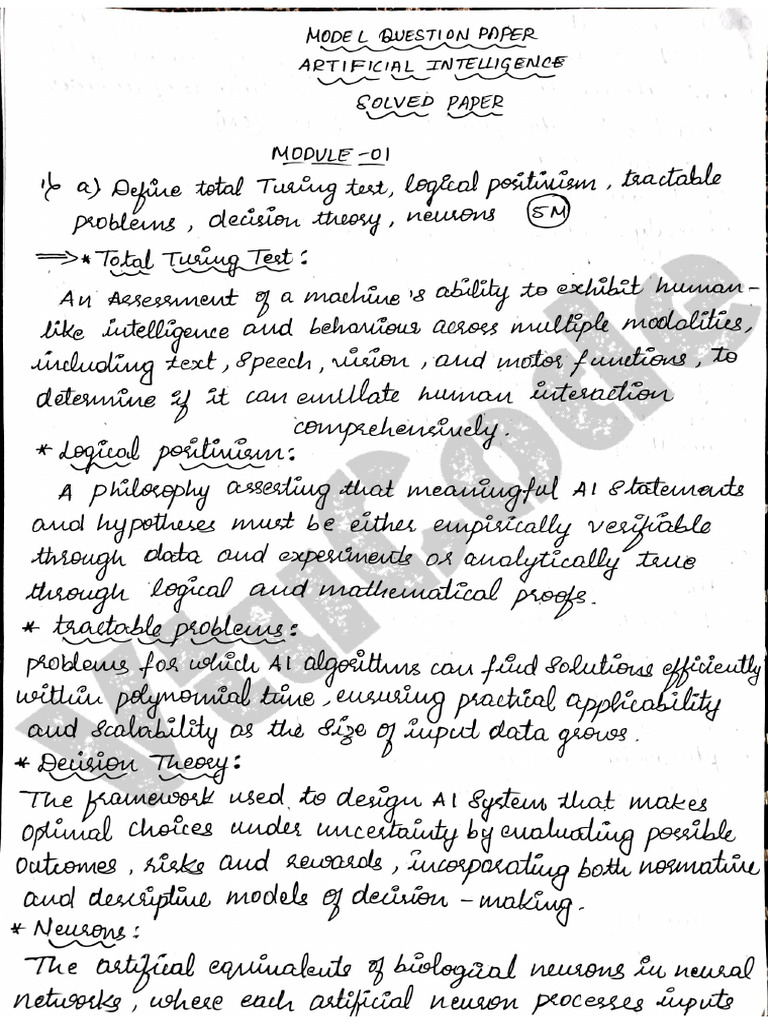 MODEL QUESTION PAPER
ARTIFICIAL INTELLIGENCE
SOLVED PAPER
MODULE -01
1) a) Define total Turing test, logical positivism, tractable
problems, decision theory, neurons (5M)
⟹ * Total Turing Test :
An Assessment of a machine's ability to exhibit human-
like intelligence and behaviour across multiple modalities,
including text, speech, vision, and motor functions, to
determine if it can emulate human interaction
comprehensively.
* Logical positivism :
A philosophy asserting that meaningful AI statements
and hypotheses must be either empirically verifiable
through data and experiments or analytically true
through logical and mathematical proofs.
* tractable problems :
problems for which AI algorithms can find solutions efficiently
within polynomial time, ensuring practical applicability
and scalability as the size of input data grows.
* Decision Theory :
The framework used to design AI System that makes
optimal choices under uncertainty by evaluating possible
outcomes, risks and rewards, incorporating both normative
and descriptive models of decision - making.
* Neurons :
The artifical equivalents of biological neurons in neural
networks, where each artificial neuron processes inputs
VturCode